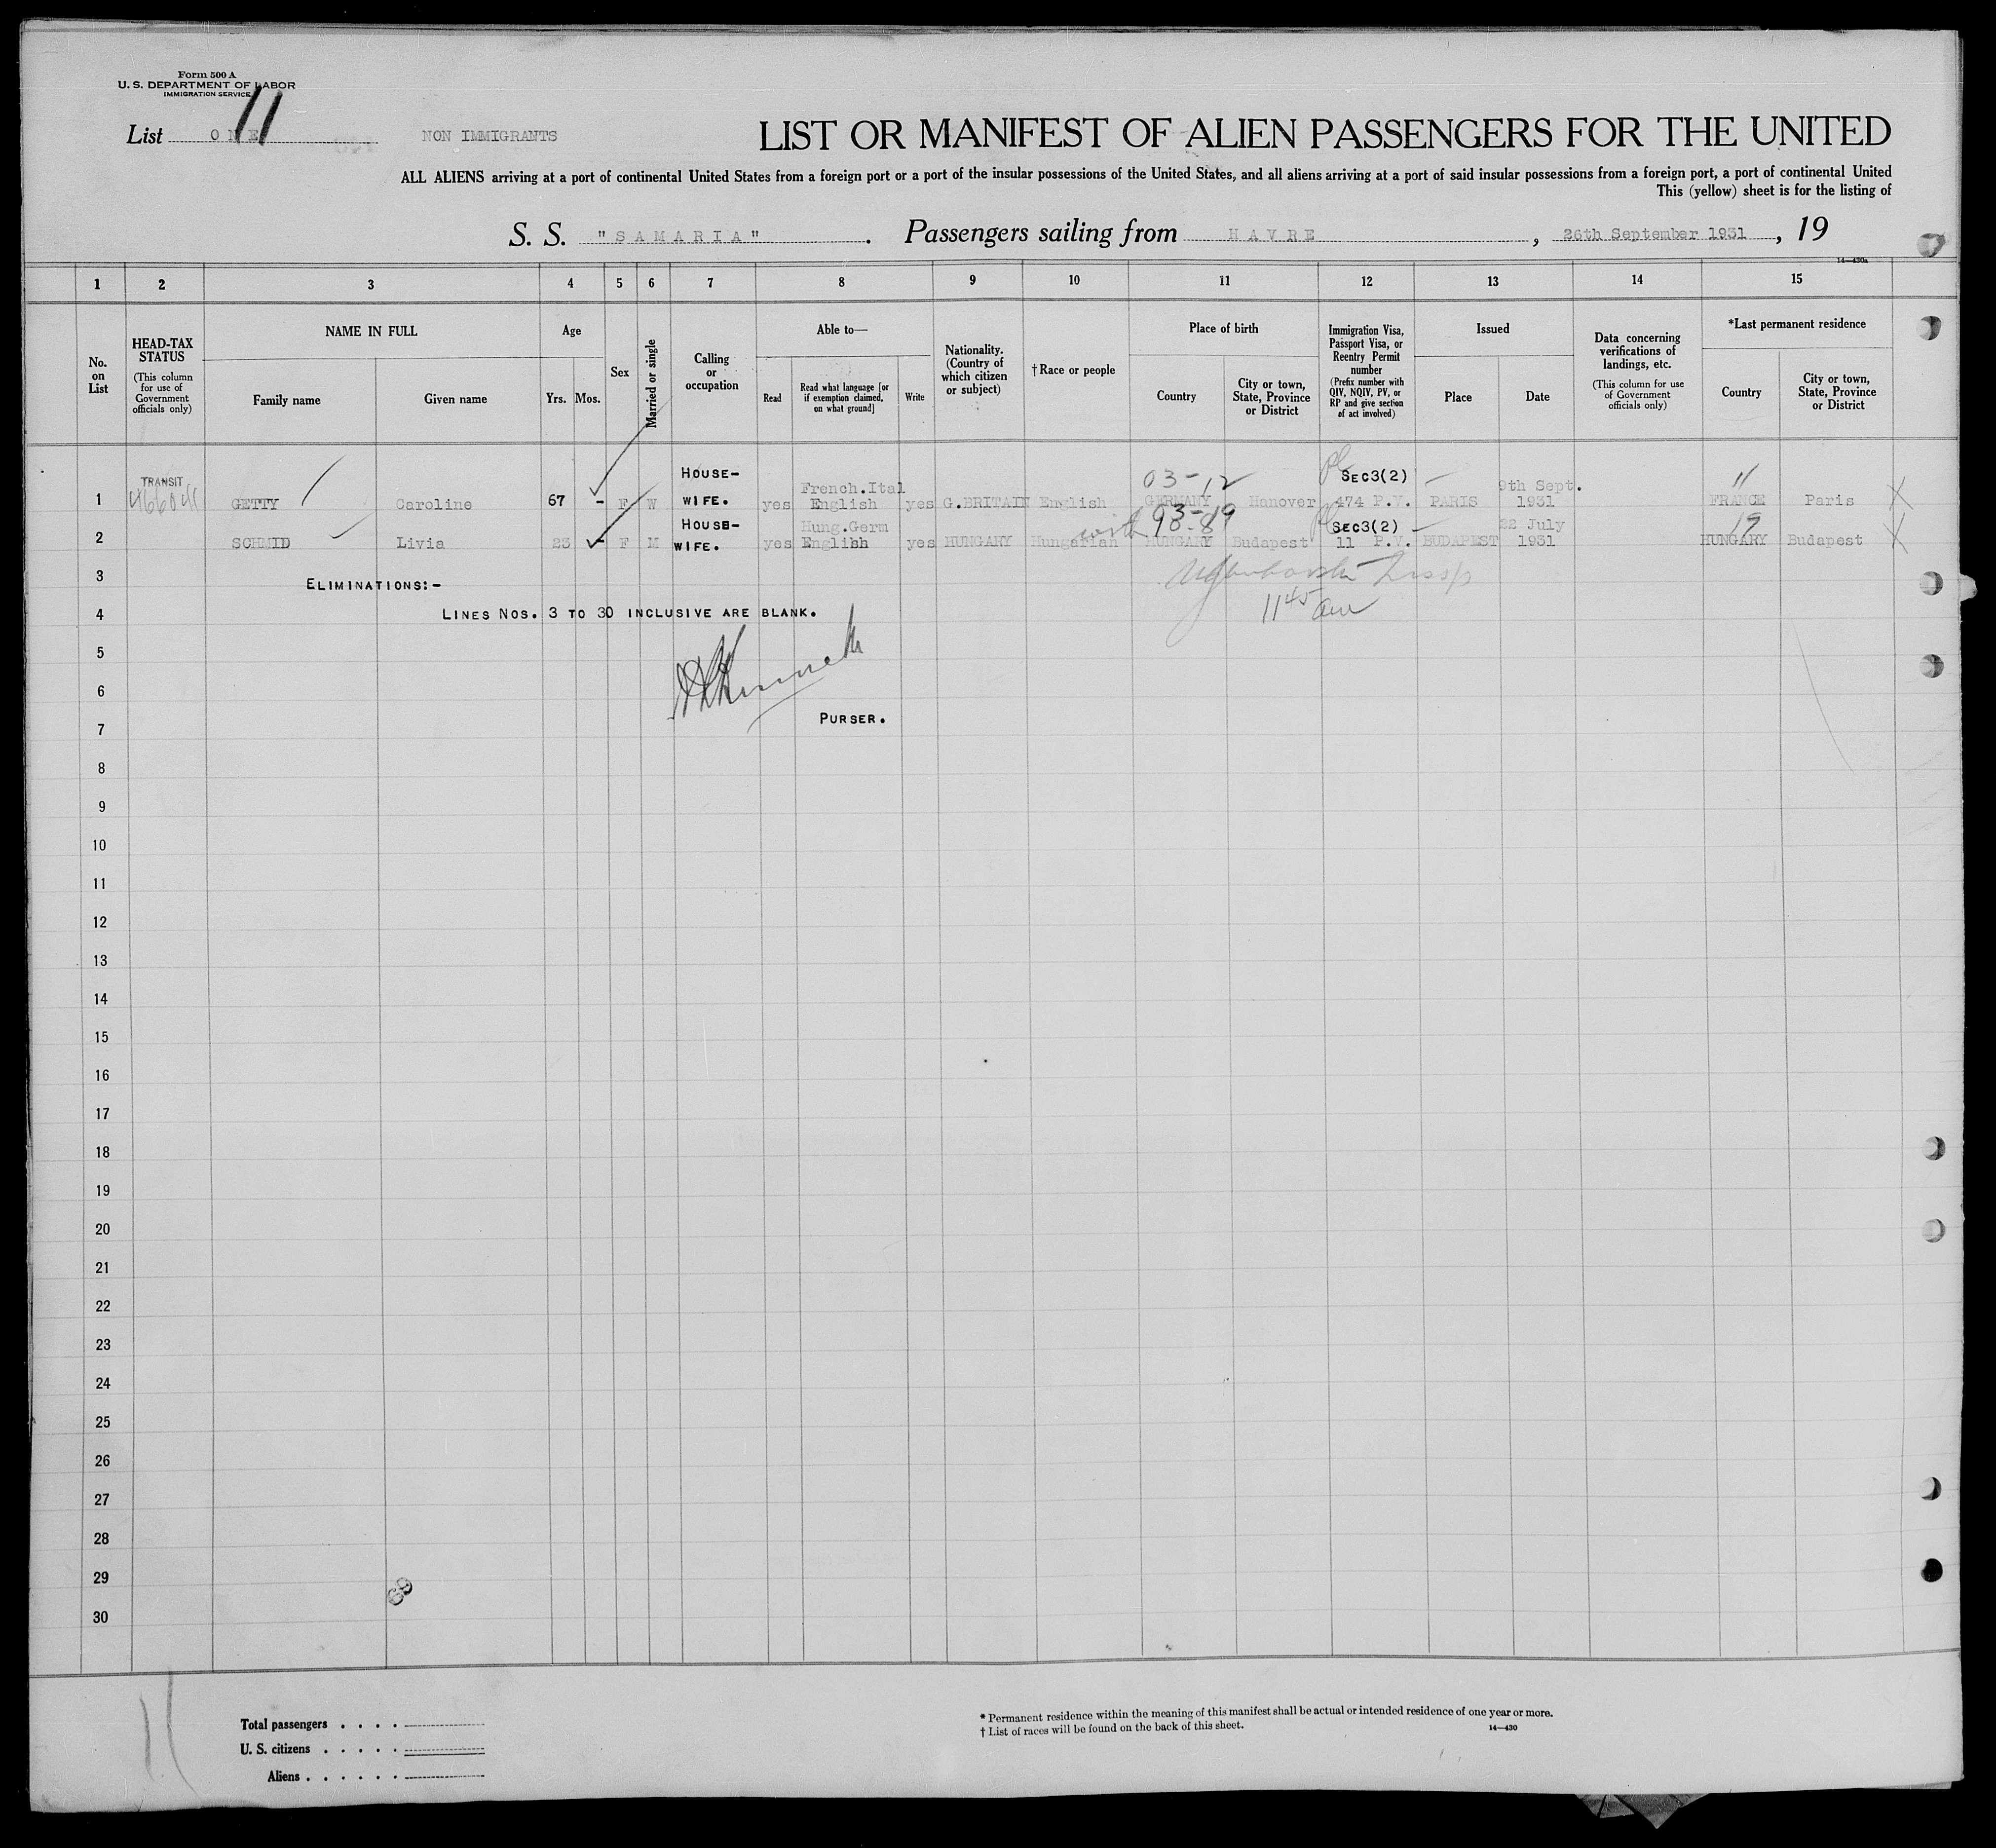 Form 500 A
U. S. DEPARTMENT OF LABOR
IMMIGRATION SERVICE
11
List ONE NON IMMIGRANTS
LIST OR MANIFEST OF ALIEN PASSENGERS FOR THE UNITED
ALL ALIENS arriving at a port of continental United States from a foreign port or a port of the insular possessions of the United States, and all aliens arriving at a port of said insular possessions from a foreign port, a port of continental United
This (yellow) sheet is for the listing of
S. S. "SAMARIA". Passengers sailing from HAVRE, 26th September 1931, 19
14—430a
1 2 3 4 5 6 7 8 9 10 11 12 13 14 15
No. on List
HEAD-TAX STATUS (This column for use of Government officials only)
NAME IN FULL
Family name Given name
Age
Yrs. Mos.
Sex
Married or single
Calling or occupation
Able to—
Read
Read what language [or if exemption claimed, on what ground]
Write
Nationality. (Country of which citizen or subject)
†Race or people
Place of birth
Country
City or town, State, Province or District
Immigration Visa, Passport Visa, or Reentry Permit number (Prefix number with QIV, NQIV, PV, or RP and give section of act involved)
Issued
Place Date
Data concerning verifications of landings, etc. (This column for use of Government officials only)
*Last permanent residence
Country
City or town, State, Province or District
1 TRANSIT GETTY Caroline 67 - F W HOUSE-WIFE. yes French.Ital English yes G.BRITAIN English 03-12 GERMANY Hanover SEC3(2) 474 P.V. PARIS 9th Sept. 1931 11 FRANCE Paris X
2 SCHMID Livia 23 - F M HOUSE-WIFE. yes Hung.Germ English yes HUNGARY Hungarian HUNGARY Budapest SEC3(2) 11 P.V. BUDAPEST 22 July 1931 19 HUNGARY Budapest X
3 ELIMINATIONS:-
4 LINES NOS. 3 TO 30 INCLUSIVE ARE BLANK.
11 45 am
5
6
7 PURSER.
8
9
10
11
12
13
14
15
16
17
18
19
20
21
22
23
24
25
26
27
28
29
30
Total passengers . . . .
U. S. citizens . . . . .
Aliens . . . . . .
* Permanent residence within the meaning of this manifest shall be actual or intended residence of one year or more.
† List of races will be found on the back of this sheet.
14—430